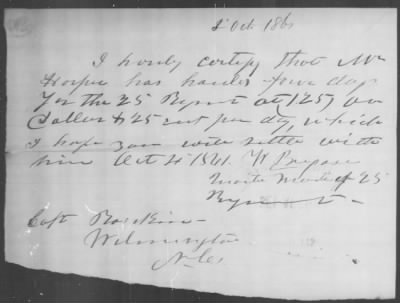 Oct 186
I hearby certify that Mr
Hooper has hauled five days
for the 25 Regmt at 1.25 on
Dollar & 25 cent per day, which
I hope you will settle with
him Oct 4 1861. W
Waste Master of 25
Regment
Capt
Wilmington
N.C.